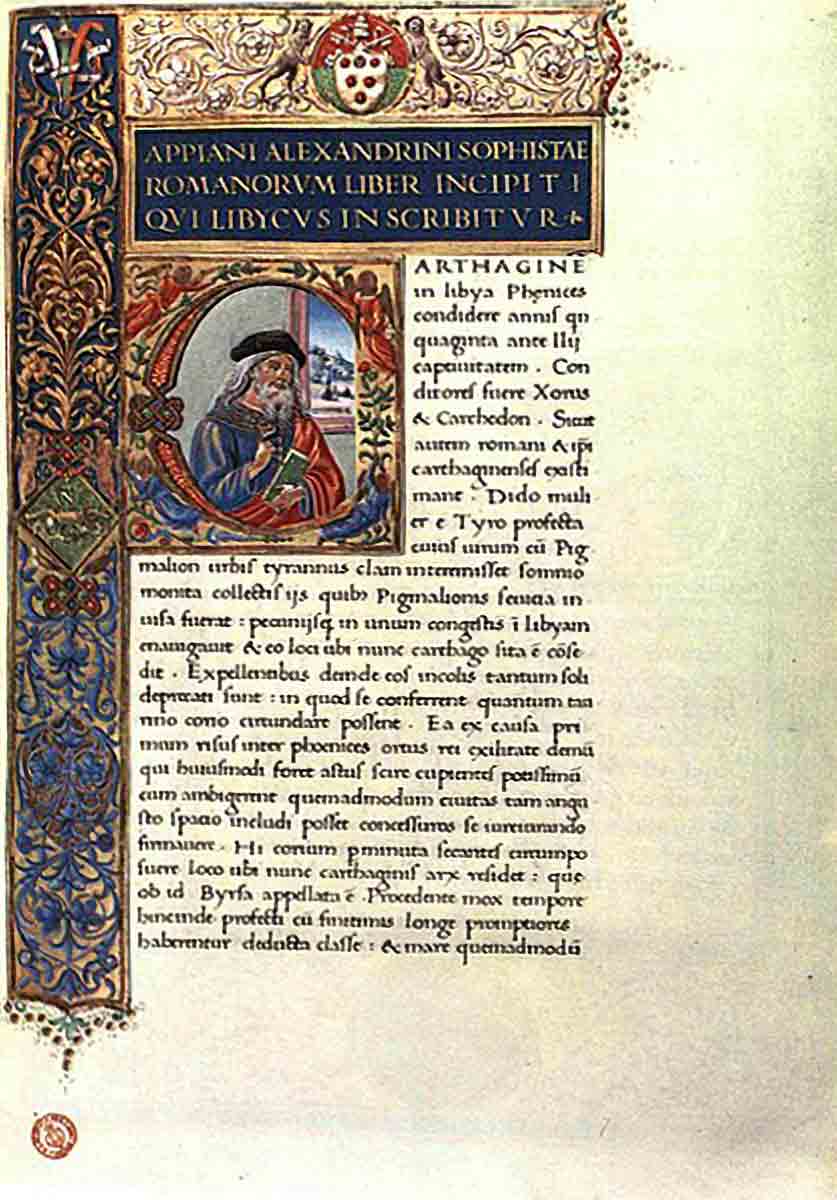 APPIANI ALEXANDRINI SOPHISTAE
ROMANORVM LIBER INCIPIT I
QVI LIBYCVS INSCRIBITVR
CARTHAGINE
in libya Phenices
condidere annis qn
quaginta ante Ilij
captiuitatem . Con
ditores fuere Xorus
& Carchedon . Sicut
autem romani & ip̄i
carthaginenses existi
mant : Dido muli
er e Tyro profecta
cuius uirum cū Pig
malion urbis tyrannus clam interemisset somnio
monita collectis ijs quibꝰ Pigmalionis seuicia in
uisa fuerat : pecunijsq̨ in unum congestis ī libyam
enauigauit & eo loci ubi nunc carthago sita ē cōse
dit . Expellentibus deinde eos incolis tantum soli
deprecati sunt : in quod se conferrent quantum tau
rino corio circundare possent . Ea ex causa pri
mum risus inter phoenices ortus rei exilitate demū
qui huiusmodi foret astus scire cupientes potissimū
cum ambigerent quemadmodum ciuitas tam angu
sto spacio includi posset concessuros se iureiurando
firmauere . Hi corium p minuta secantes circumpo
suere loco ubi nunc carthaginis arx residet : que
ob id Byrsa appellata ē . Procedente mox tempore
hincinde profecti cū finitimis longe promptiores
haberentur deducta classe : & mare quemadmodū